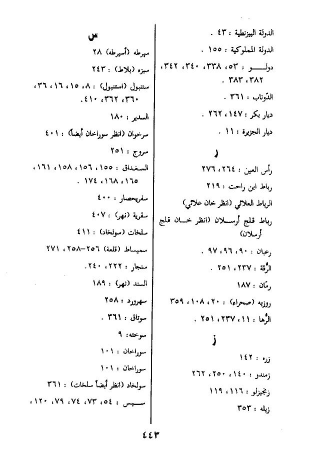 الدولة البيزنطية : ٤٣ .
الدولة المملوكية : ١٥٥ .
دولـــو : ٥٣ ، ٣٣٨ ، ٣٤٠ ، ٣٤٢ ،
٣٨٢ ، ٣٨٣ .
الدوناب : ٣٦١ .
ديار بكر : ١٤٧ ، ٢٦٢ .
ديار الجزيرة : ١١ .
ر
رأس العين : ٢٦٤ ، ٢٧٦
رباط ابن راحت : ٢١٩
الرباط العلائي (انظر خان علائي)
رباط قلج أرسلان (انظر خان قلج
أرسلان)
رعبان : ٩٠ ، ٩٦ ، ٩٧ .
الرقة : ٢٣٧ ، ٢٥١ .
رمان : ١٨٧
روزبه (صحراء) : ٢٠ ، ١٠٨ ، ٣٥٩
الرها : ١١ ، ٢٣٧ ، ٢٥١ .
ز
زره : ١٤٢
زمندو : ١٤٠ ، ٢٥٠ ، ٢٦٢
زنجيرلو : ١١٦ ، ١١٩
زيله : ٣٥٣
س
سبرطه (أسبرطه) ٢٨
سبزه (بلاط) : ٢٤٣
ستنبول (استنبول) : ٨ ، ١٥ ، ١٦ ، ٣٦ ،
٣٦٠ ، ٣٦٢ ، ٤١٠ .
السدير : ١٨٠
سرخوان (انظر سوراخان أيضاً) : ٤٠١
سروج : ٢٥١
السغداق : ١٥٥ ، ١٥٦ ، ١٥٨ ، ١٦١ ،
١٦٥ ، ١٦٨ ، ١٧٤ .
سفريحصار : ٤٠٠
سقرية (نهر) : ٤٠٧
سلخات (سولخاد) : ٤١١
سميساط (قلعة) ٢٥٦–٢٥٨ ، ٢٧١
سنجار : ٢٢٢ ، ٢٤٠ .
السند (نهر) : ١٨٩
سهرورد : ٢٥٨
سوتاق : ٣٦١ .
سوخته : ٩
سوراخان : ١٠١
سوراخان : ١٠١
سولخاد (انظر أيضاً سلخات) : ٣٦١
سيــس : ٥٤ ، ٧٣ ، ٧٤ ، ٧٩ ، ١٢٠ ،
٤٤٣